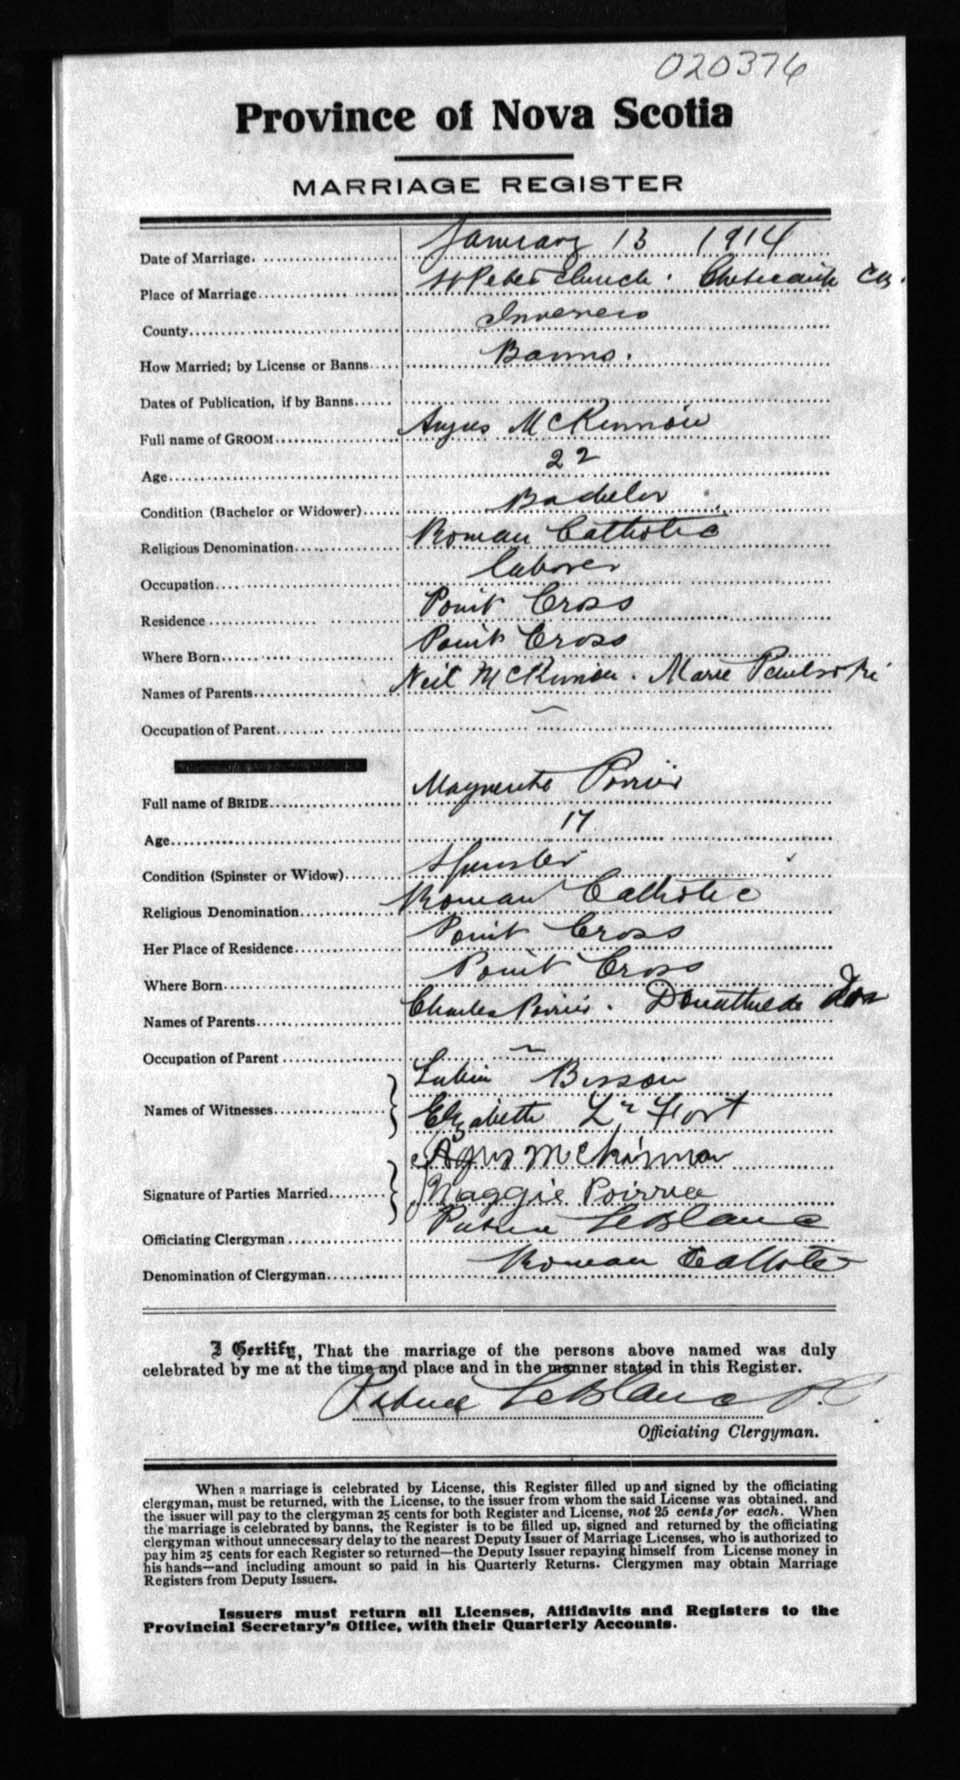 020376
Province of Nova Scotia
MARRIAGE REGISTER
Date of Marriage. January 13 1914
Place of Marriage St Peter Church. Cheticamp CB.
County Inverness
How Married; by License or Banns Banns.
Dates of Publication, if by Banns
Full name of GROOM Angus McKinnon
Age 22
Condition (Bachelor or Widower) Bachelor
Religious Denomination Roman Catholic
Occupation Laborer
Residence Point Cross
Where Born Point Cross
Names of Parents Neil McKinnon. Marie
Occupation of Parent ~
Full name of BRIDE Marguerite Poirier
Age 17
Condition (Spinster or Widow) Spinster
Religious Denomination Roman Catholic
Her Place of Residence Point Cross
Where Born Point Cross
Names of Parents Charles Poirier.
Occupation of Parent ~
Names of Witnesses Lubin Bisson
Elizabeth Le Fort
Signature of Parties Married Agus McKinnon
Maggie Poirrier
Officiating Clergyman Patrice LeBlanc
Denomination of Clergyman Roman Catholic
I Certify, That the marriage of the persons above named was duly
celebrated by me at the time and place and in the manner stated in this Register.
Patrice LeBlanc
Officiating Clergyman.
When a marriage is celebrated by License, this Register filled up and signed by the officiating
clergyman, must be returned, with the License, to the issuer from whom the said License was obtained, and
the issuer will pay to the clergyman 25 cents for both Register and License, not 25 cents for each. When
the marriage is celebrated by banns, the Register is to be filled up, signed and returned by the officiating
clergyman without unnecessary delay to the nearest Deputy Issuer of Marriage Licenses, who is authorized to
pay him 25 cents for each Register so returned—the Deputy Issuer repaying himself from License money in
his hands—and including amount so paid in his Quarterly Returns. Clergymen may obtain Marriage
Registers from Deputy Issuers.
Issuers must return all Licenses, Affidavits and Registers to the
Provincial Secretary's Office, with their Quarterly Accounts.